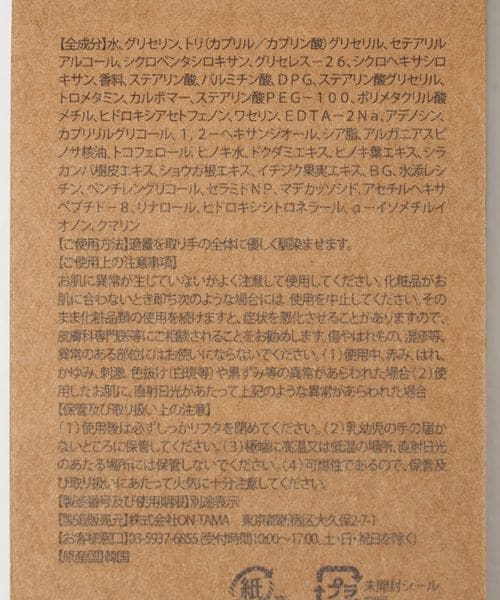 【全成分】水、グリセリン、トリ(カプリル/カプリン酸)グリセリル、セテアリル
アルコール、シクロペンタシロキサン、グリセレス-26、シクロヘキサシロ
キサン、香料、ステアリン酸、パルミチン酸、DPG、ステアリン酸グリセリル、
トロメタミン、カルボマー、ステアリン酸PEG-100、ポリメタクリル酸
メチル、ヒドロキシアセトフェノン、ワセリン、EDTA-2Na、アデノシン、
カプリリルグリコール、1,2-ヘキサンジオール、シア脂、アルガニアスピ
ノサ核油、トコフェロール、ヒノキ水、ドクダミエキス、ヒノキ葉エキス、シラ
カンバ樹皮エキス、ショウガ根エキス、イチジク果実エキス、BG、水添レシ
チン、ペンチレングリコール、セラミドNP、マデカッソシド、アセチルヘキサ
ペプチド-8、リナロール、ヒドロキシシトロネラール、α-イソメチルイ
オノン、クマリン
【ご使用方法】適量を取り手の全体に優しく馴染ませます。
【ご使用上の注意事項】
お肌に異常が生じていないかよく注意して使用してください。化粧品がお
肌に合わないとき即ち次のような場合には、使用を中止してください。その
まま化粧品類の使用を続けますと、症状を悪化させることがありますので、
皮膚科専門医等にご相談されることをお勧めします。傷やはれもの、湿疹等、
異常のある部位にはお使いにならないでください。(1)使用中、赤み、はれ、
かゆみ、刺激、色抜け(白斑等)や黒ずみ等の異常があらわれた場合(2)使
用したお肌に、直射日光があたって上記のような異常があらわれた場合
【保管及び取り扱い上の注意】
(1)使用後は必ずしっかりフタを閉めてください。(2)乳幼児の手の届か
ないところに保管してください。(3)極端に高温又は低温の場所、直射日光
のあたる場所には保管しないでください。(4)可燃性であるので、保管及
び取り扱いにあたって火気に十分注意してください。
【製造番号及び使用期限】別途表示
【製造販売元】株式会社ON-TAMA 東京都新宿区大久保2-7-1
【お客様窓口】03-5937-6855(受付時間10:00~17:00、土・日・祝日を除く)
【原産国】韓国
紙 プラ 未開封シール